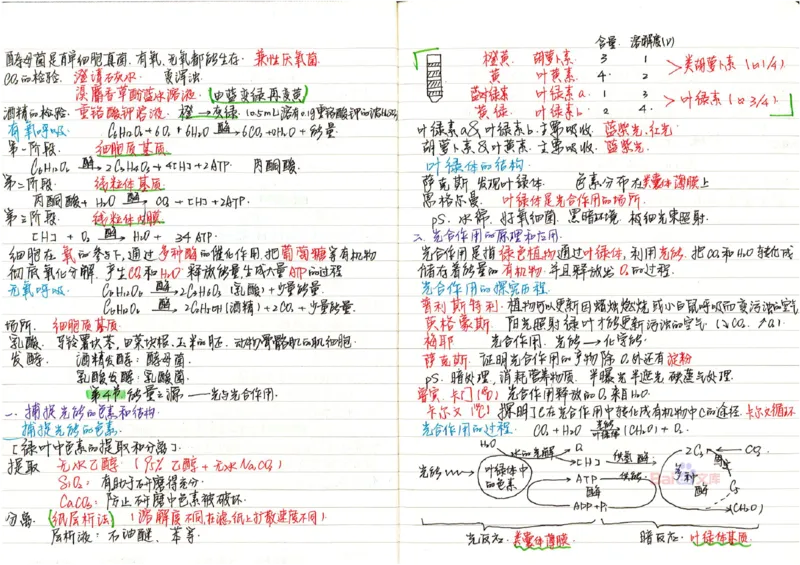 酵母菌是真单细胞真菌. 有氧、无氧都能生存. 兼性厌氧菌
CO₂的检验. 澄清石灰水. 变浑浊.
溴麝香草酚蓝水溶液. (由蓝变绿再变黄)
酒精的检验. 重铬酸钾溶液. 橙→灰绿
有氧呼吸. C₆H₁₂O₆+6O₂+6H₂O 酶→ 6CO₂+12H₂O+能量.
第一阶段. 细胞质基质
C₆H₁₂O₆ 酶→ 2C₃H₄O₃+4[H]+2ATP. 丙酮酸.
第二阶段. 线粒体基质
丙酮酸+H₂O 酶→ CO₂+[H]+2ATP.
第三阶段. 线粒体内膜
[H]+O₂ 酶→ H₂O+34ATP.
细胞在氧的参与下,通过多种酶的催化作用,把葡萄糖等有机物
彻底氧化分解,产生CO₂和H₂O 释放能量,生成大量ATP的过程
无氧呼吸. C₆H₁₂O₆ 酶→ 2C₃H₆O₃(乳酸)+少量能量.
C₆H₁₂O₆ 酶→ 2C₂H₅OH(酒精)+2CO₂+少量能量.
场所. 细胞质基质
乳酸. 马铃薯块茎,甜菜块根,玉米的胚. 动物骨骼肌的肌细胞.
发酵. 酒精发酵:酵母菌.
乳酸发酵:乳酸菌.
第4节 能量之源——光与光合作用.
一. 捕捉光能的色素和结构.
捕捉光能的色素.
[绿叶中色素的提取和分离]
提取 无水乙醇 (95%乙醇+无水Na₂CO₃)
SiO₂: 有助于研磨得充分.
CaCO₃: 防止研磨中色素被破坏.
分离. (纸层析法) (溶解度不同,在滤纸上扩散速度不同)
层析液:石油醚、苯等.
含量. 溶解度(v)
橙黄. 胡萝卜素. 3 1
黄. 叶黄素. 4 2 >类胡萝卜素(占1/4)
蓝绿 叶绿素a. 1 3
黄绿. 叶绿素b. 2 4 >叶绿素(占3/4)
叶绿素a&叶绿素b.主要吸收.蓝紫光,红光
胡萝卜素&叶黄素.主要吸收.蓝紫光.
叶绿体的结构.
萨克斯 发现叶绿体. 色素分布在类囊体薄膜上
恩格尔曼. 叶绿体是光合作用的场所.
PS. 水绵. 好氧细菌. 黑暗环境. 极细光束照射.
二.光合作用的原理和应用.
光合作用是指绿色植物通过叶绿体,利用光能.把CO₂和H₂O转化成
储存着能量的有机物.并且释放出O₂的过程.
光合作用的探究历程.
普利斯特利.植物可以更新因蜡烛燃烧或小白鼠呼吸而变污浊的空气
英格豪斯. 阳光照射绿叶才能更新污浊的空气(↓CO₂. ↑O₂)
梅耶 光合作用.光能→化学能.
萨克斯. 证明光合作用的产物除O₂外还有淀粉
PS. 暗处理,消耗营养物质. 半曝光半遮光 碘蒸气处理.
鲁宾.卡门(¹⁸O) 光合作用释放的O₂来自H₂O.
卡尔文(¹⁴C) 探明了C在光合作用中转化成有机物中C的途径.卡尔文循环
光合作用的过程. CO₂+H₂O 光能 叶绿体→ (CH₂O)+O₂.
H₂O 水的光解 O₂ 2C₃ CO₂
[H] 供氢 酶
光能 叶绿体中的色素 ATP 供能 多种酶
酶 C₅
ADP+Pi (CH₂O)
光反应.类囊体薄膜. 暗反应.叶绿体基质